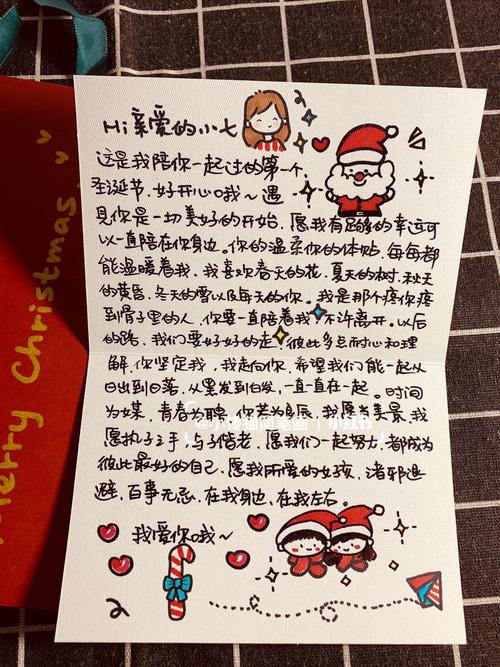 Merry Christmas
Hi 亲爱的小七
这是我陪你一起过的第一个
圣诞节.好开心哦~遇
见你是一切美好的开始.愿我有足够的幸运可
以一直陪在你身边.你的温柔你的体贴.每每都
能温暖着我.我喜欢春天的花.夏天的树.秋天
的黄昏.冬天的雪以及每天的你.我是那个疼你疼
到骨子里的人.你要一直陪着我.不许离开.以后
的路.我们要好好的走.彼此多点耐心和理
解.你坚定我,我走向你.希望我们能一起从
日出到日落.从黑发到白发,一直一直在一起.时间
为媒,青春为聘.你若为良辰.我愿为美景.我
愿执子之手.与子偕老.愿我们一起努力.都成为
彼此最好的自己.愿我所爱的女孩,诸邪退
避,百事无忌.在我身边,在我左右。
我爱你哦~
小红书